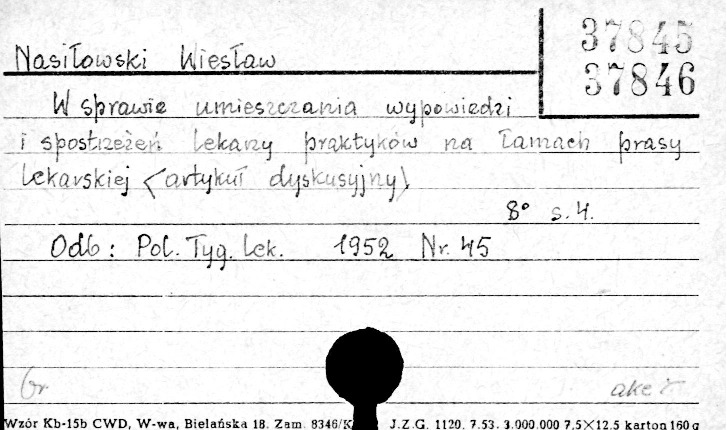 Nasiłowski Wiesław
37845
37846
W sprawie umieszczania wypowiedzi
i spostrzeżeń lekarzy praktyków na łamach prasy
lekarskiej (artykuł dyskusyjny)
8° s. 4.
Odb: Pol. Tyg. Lek. 1952 Nr. 45
Gr
Wzór Kb-15b CWD, W-wa, Bielańska 18. Zam. 8346/K J.Z.G. 1120. 7.53. 3.000.000 7,5×12,5 karton 160 g